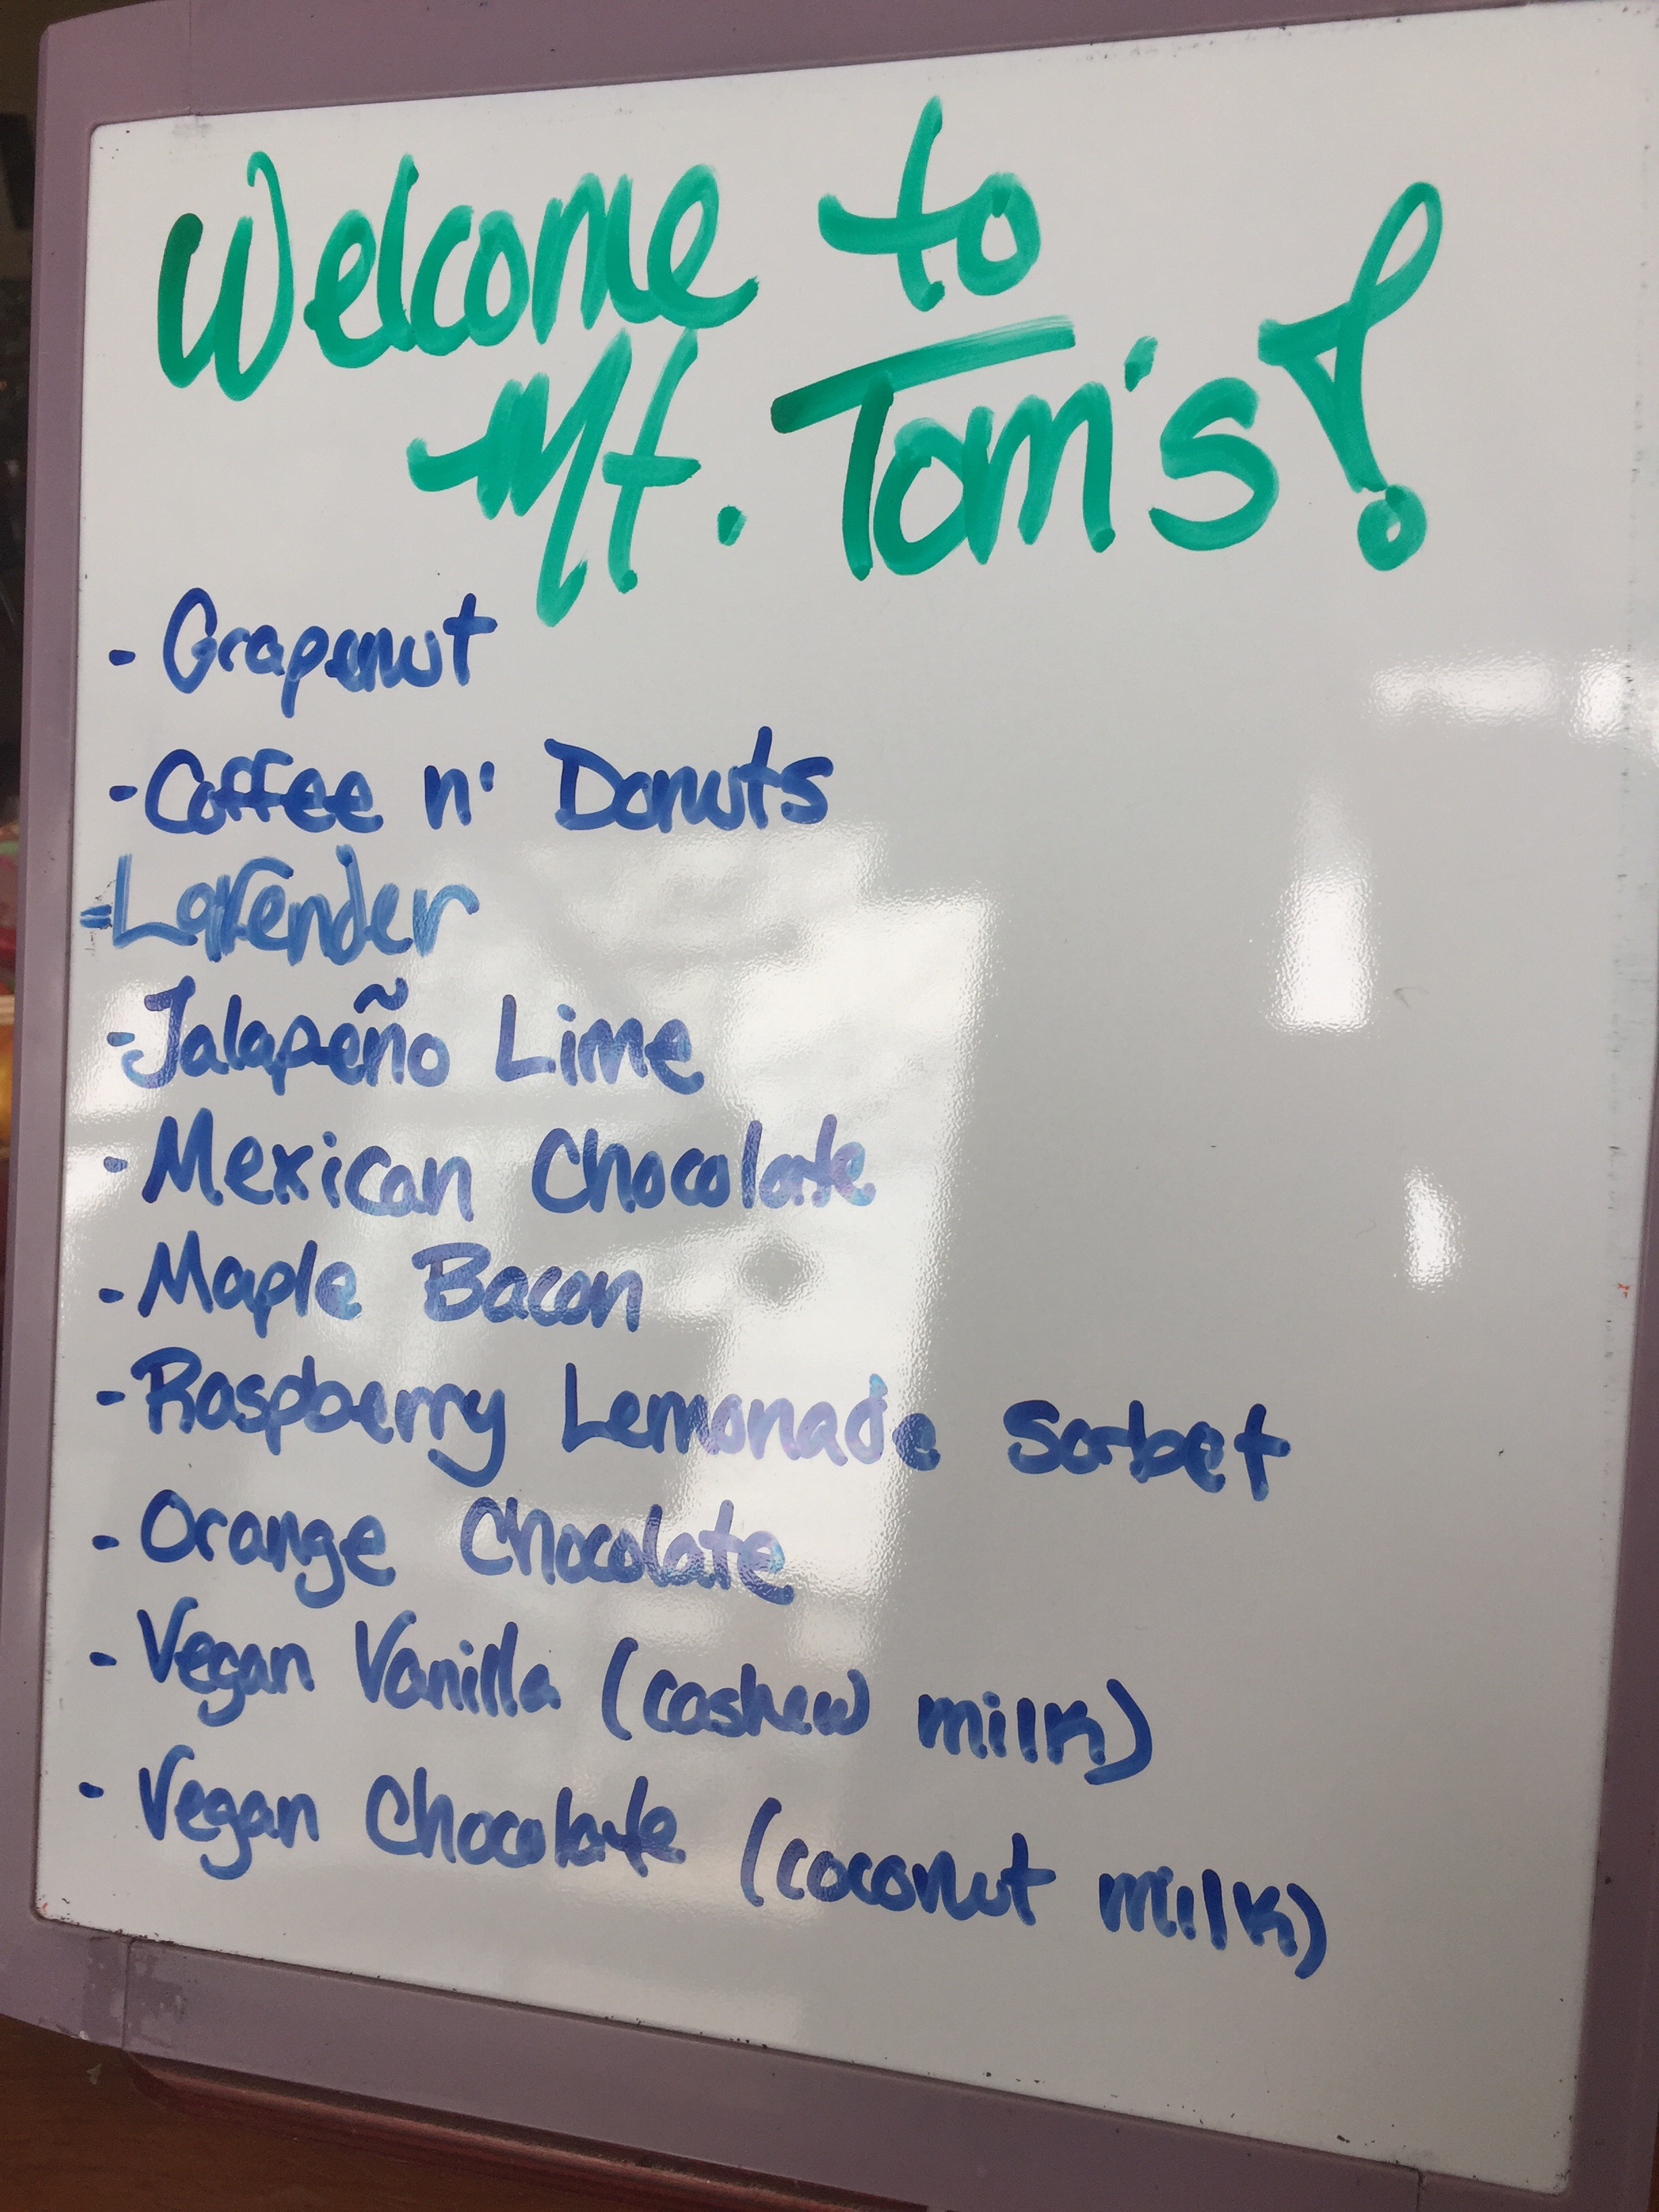 Welcome to
Mt. Tom's!
- Grapenut
- Coffee n' Donuts
- Lavender
- Jalapeño Lime
- Mexican Chocolate
- Maple Bacon
- Raspberry Lemonade Sorbet
- Orange Chocolate
- Vegan Vanilla (cashew milk)
- Vegan Chocolate (coconut milk)